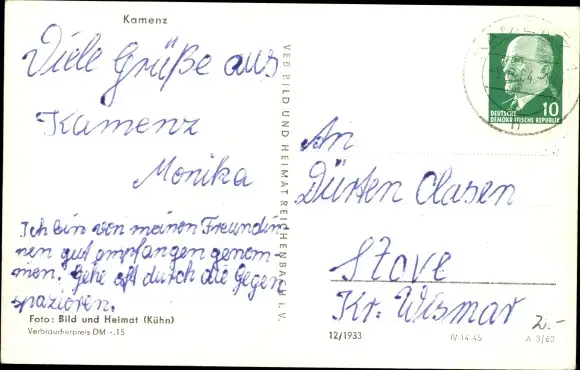 Kamenz
Viele Grüße aus
Kamenz
Monika
Ich bin von meinen Freundin
nen gut empfangen genom-
men. Gehe oft durch die Gegend
spazieren.
Foto: Bild und Heimat (Kühn)
Verbraucherpreis DM -.15
VEB BILD UND HEIMAT REICHENBACH I. V.
10
DEUTSCHE
DEMOKRATISCHE REPUBLIK
An
Dürten Clasen
Stove
Kr. Wismar
12/1933
IV-14-45
A 3/62